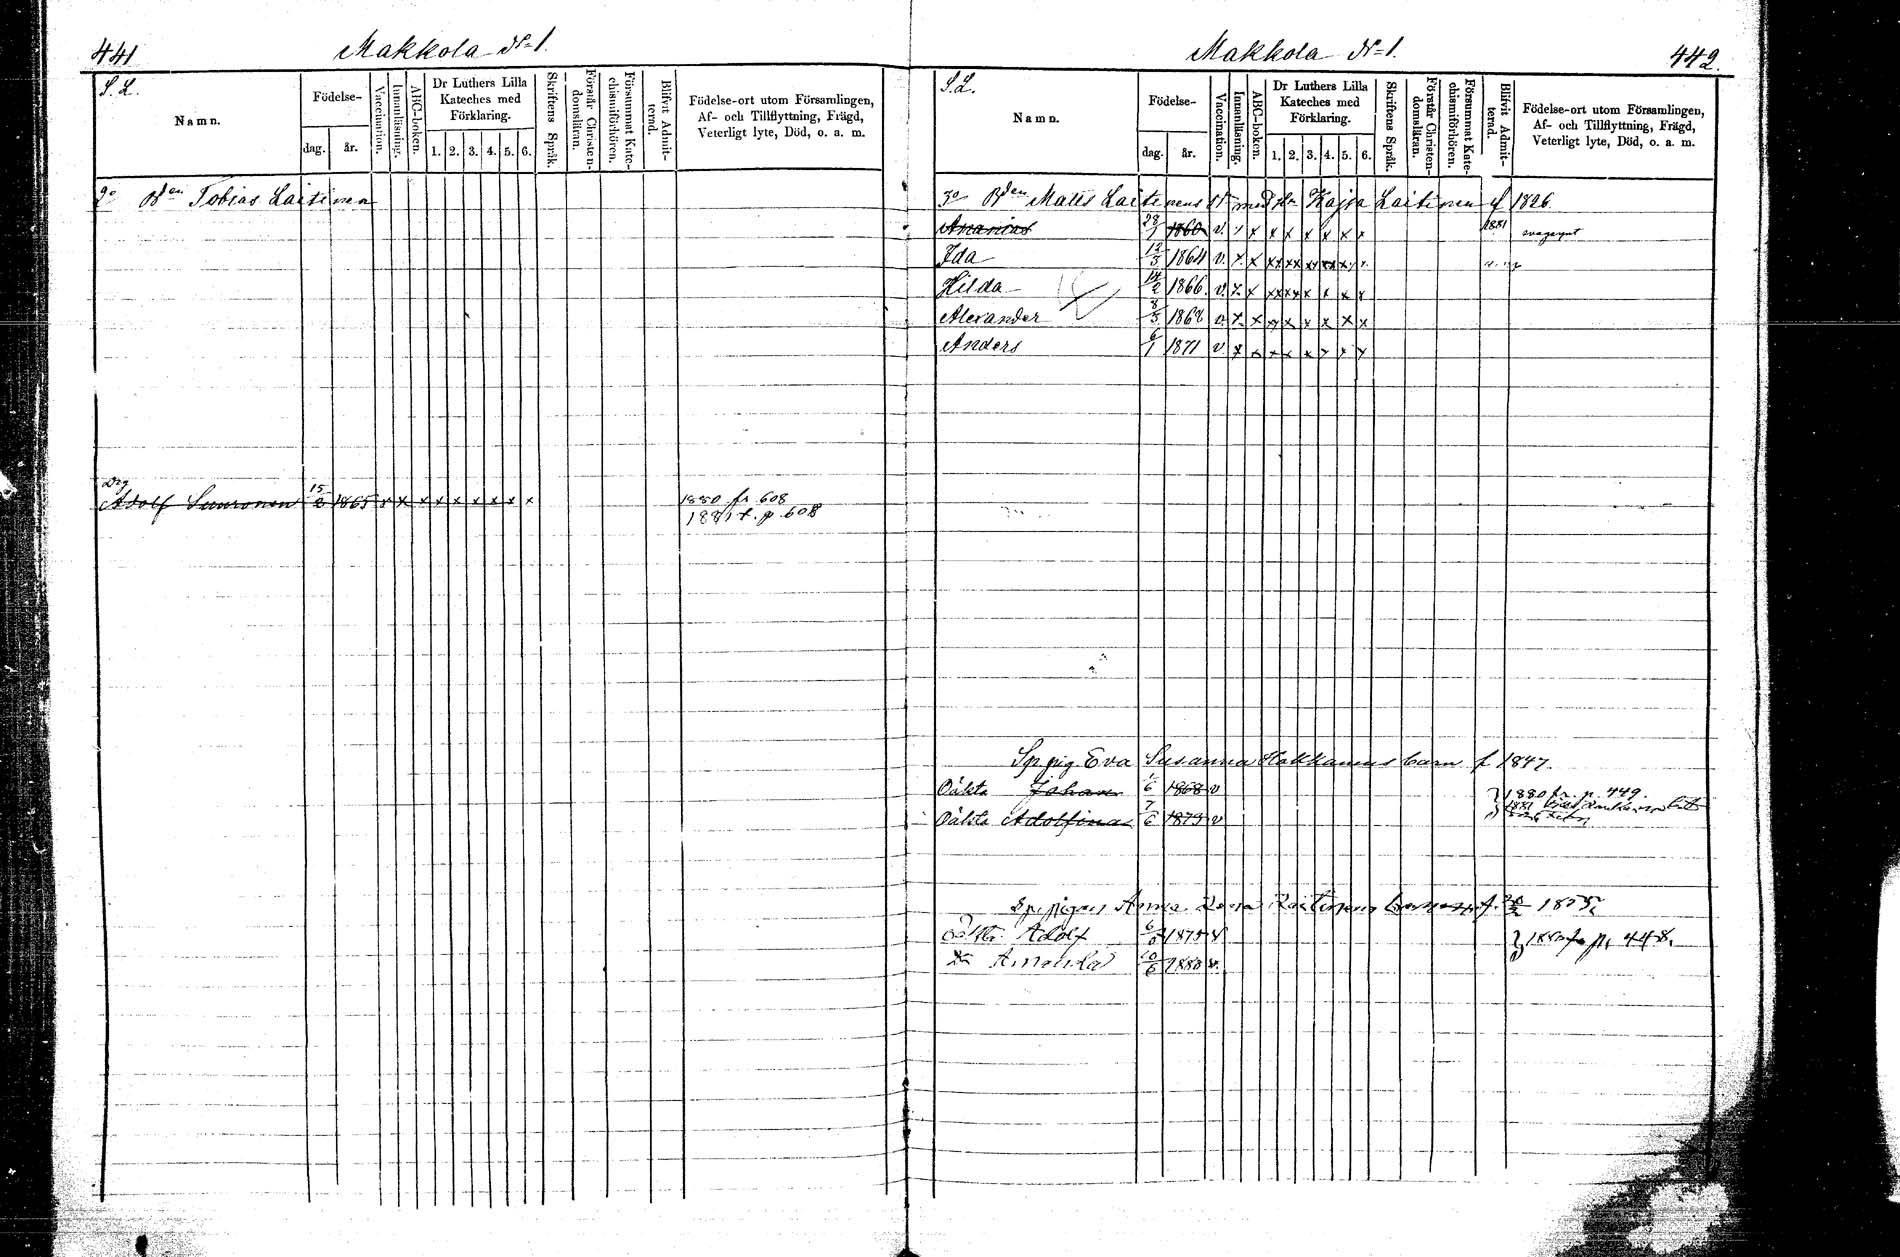 441 Makkola № 1.
S. L.
Namn.
Födelse-
dag. år.
Vaccination.
Innanläsning.
ABC-boken.
Dr Luthers Lilla
Kateches med
Förklaring.
1. 2. 3. 4. 5. 6.
Skriftens Språk.
Förstår Christen-
domsläran.
Försummat Kate-
chismiförhören.
Blifvit Admit-
terad.
Födelse-ort utom Församlingen,
Af- och Tillflyttning, Frägd,
Veterligt lyte, Död, o. a. m.
2o Bden Tobias Laitinen
Drg
Adolf Suuronen 15/2 1865 x x x x x x x x x 1880 fr. 608
1881 t. p. 608
Makkola № 1. 442.
S. L.
Namn.
Födelse-
dag. år.
Vaccination.
Innanläsning.
ABC-boken.
Dr Luthers Lilla
Kateches med
Förklaring.
1. 2. 3. 4. 5. 6.
Skriftens Språk.
Förstår Christen-
domsläran.
Försummat Kate-
chismiförhören.
Blifvit Admit-
terad.
Födelse-ort utom Församlingen,
Af- och Tillflyttning, Frägd,
Veterligt lyte, Död, o. a. m.
3o Bden Matts Laitinens med Kajsa Laitinen f 1826
Ananias 28/1 1860 v. x x x x x x x 1881
Ida 12/3 1864 v. x x xx xx xx xx xx x
Hilda 14/2 1866 v. x x xx xx x x x x
Alexander 8/5 1868 v. x x xx x x x x x
Anders 6/1 1871 v. x x x x x x x x
Sp. pig Eva Susanna Hakkanens barn f 1847.
Oäkta Johan 1/6 1868 v 1880 fr. p. 449.
Oäkta Adolfina 7/6 1879 v 1881
Sp. pigan Anna Laitinens f. 1855
Adolf 1875 v 1880 fr p. 448.
Amanda 10/6 1880 v.